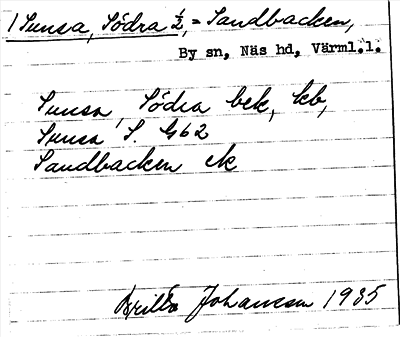 1 Sunsa, Södra ½, = Sandbacken,
By sn, Näs hd, Värml.l.
Sunsa, Södra bek, kb,
Sunsa S. G62
Sandbacken ek
Brilla Johansson 1935